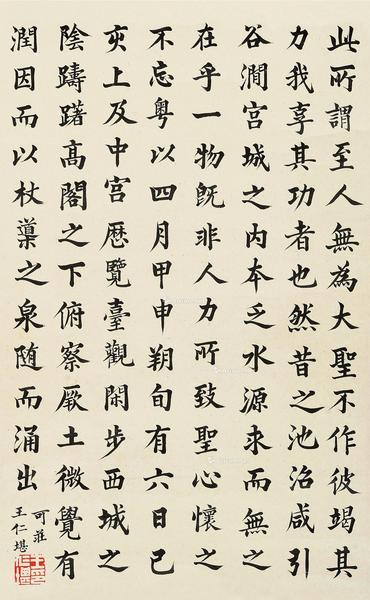 此所謂至人無為大聖不作彼竭其
力我享其功者也然昔之池沼咸引
谷澗宮城之內本乏水源求而無之
在乎一物既非人力所致聖心懷之
不忘粵以四月甲申朔旬有六日己
亥上及中宮歷覽臺觀閑步西城之
陰躊躇高閣之下俯察厥土微覺有
潤因而以杖䆃之泉随而涌出
可莊
王仁堪